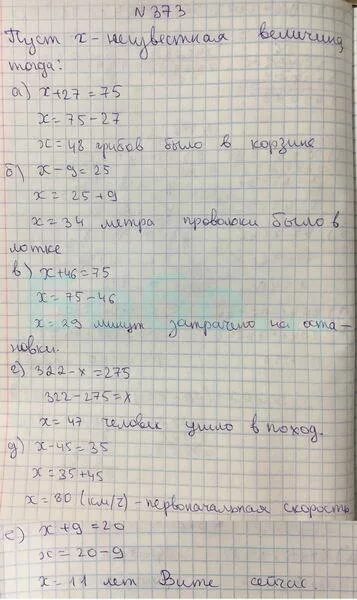 N 373
Пуст x - неизвестная величина,
тогда:
а) x+27=75
x=75-27
x=48 грибов было в корзине
б) x-9=25
x=25+9
x=34 метра проволоки было в
мотке
в) x+46=75
x=75-46
x=29 минут затрачено на оста-
новки.
г) 322-x=275
322-275=x
x=47 человек ушло в поход.
д) x-45=35
x=35+45
x=80 (км/ч) - первоначальная скорость
е) x+9=20
x=20-9
x=11 лет Вите сейчас.